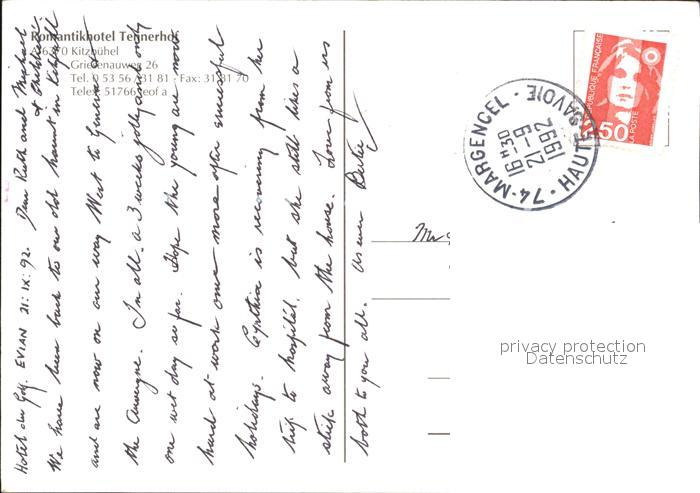 Romantikhotel Tennerhof
6370 Kitzbühel
Griesenauweg 26
Tel. 0 53 56 / 31 81 · Fax: 31 81 70
Telex 51766 eof a
Hotel du Golf. EVIAN 21: IX: 92. Dear Ruth and Michael
+ Christian.
We have been back to our old haunt in Kitzbühel
and are now on our way West to Geneva &
the Auvergne. In all a 3 weeks jolly and only
one wet day so far. Hope the young are now
hard at work once more after successful
holidays. Cynthia is recovering from her
trip to hospital, but she still likes a
stick away from the house. Love from us
both to you all. As ever Bertie
RÉPUBLIQUE FRANÇAISE
2,50
LA POSTE
74-MARGENCEL · HAUTE SAVOIE
16H30
21-9
1992
Mr
privacy protection
Datenschutz